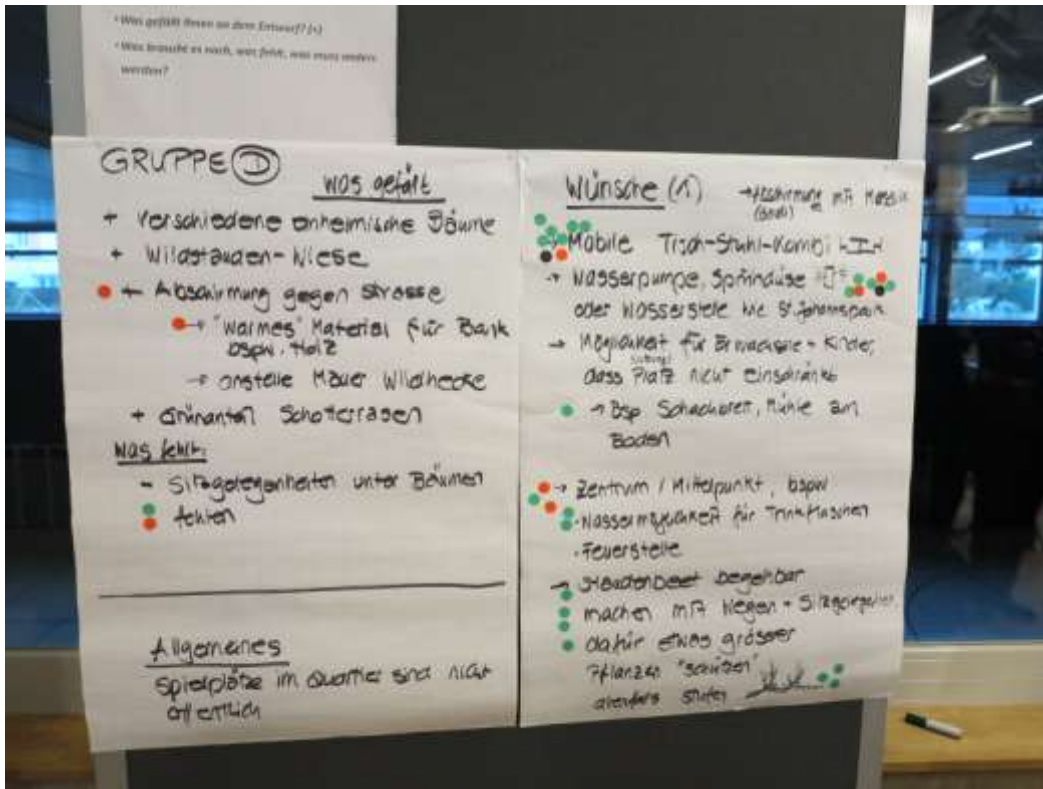 • Was gefällt Ihnen an dem Entwurf? (+)
• Was braucht es noch, was fehlt, was muss anders
werden?
GRUPPE D
Was gefällt
+ Verschiedene einheimische Bäume
+ Wildstauden-Wiese
+ Abschirmung gegen Strasse
→ "Warmes" Material für Bank
bspw. Holz
→ anstelle Mauer Wildhecke
+ Grünanteil Schotterrasen
Was fehlt:
- Sitzgelegenheiten unter Bäumen
fehlen
Allgemeines
Spielplätze im Quartier sind nicht
öffentlich
Wünsche (1)
→ Abschirmung mit
→ Mobile Tisch-Stuhl-Kombi
→ Wasserpumpe, Sprühdüse
oder Wasserstelle wie St. Johannspark
→ Möglichkeit für Erwachsene + Kinder,
dass Platz nicht einschränkt
→ Bsp Schachbrett, Mühle am
Boden
→ Zentrum / Mittelpunkt, bspw
• Wassermöglichkeit für Trinkflaschen
• Feuerstelle
→ Staudenbeet begehbar
machen mit Wegen + Sitzgelegenheit,
dafür etwas grösser
Pflanzen "schützen"